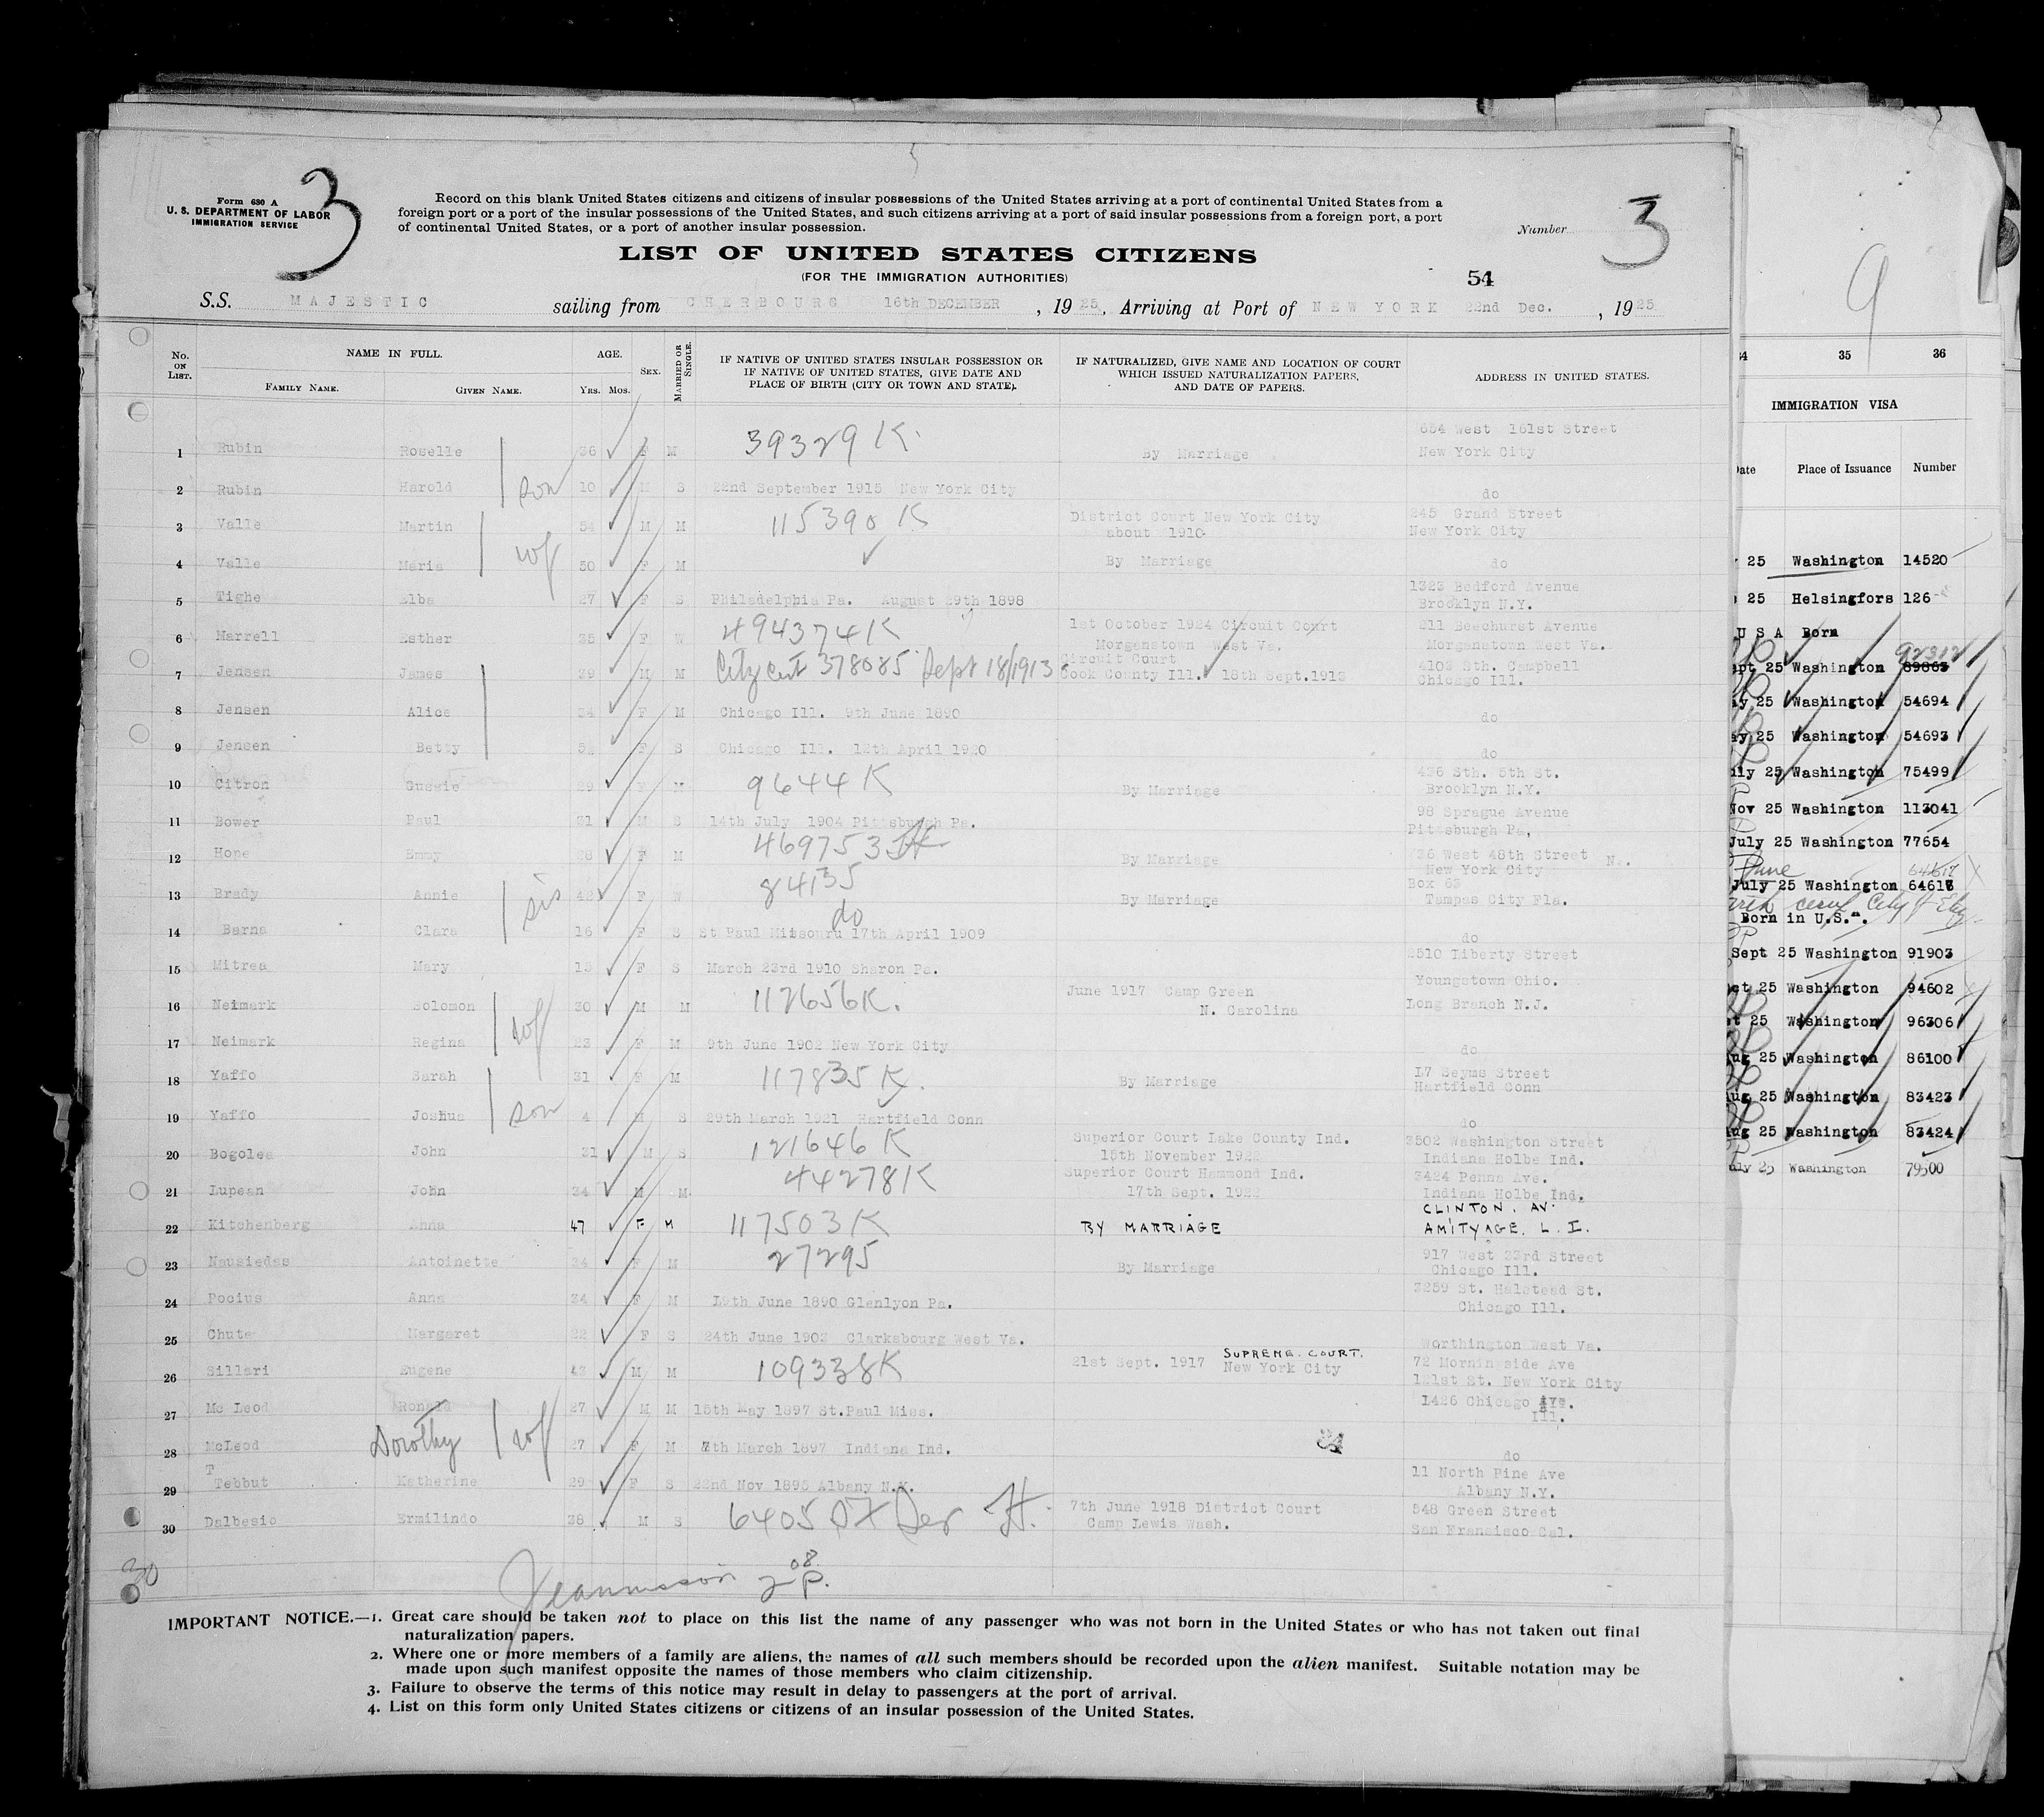 Form 630 A
U. S. DEPARTMENT OF LABOR
IMMIGRATION SERVICE
3
Record on this blank United States citizens and citizens of insular possessions of the United States arriving at a port of continental United States from a
foreign port or a port of the insular possessions of the United States, and such citizens arriving at a port of said insular possessions from a foreign port, a port
of continental United States, or a port of another insular possession.
Number
3
LIST OF UNITED STATES CITIZENS
(FOR THE IMMIGRATION AUTHORITIES)
54
S.S. MAJESTIC sailing from CHERBOURG 16th DECEMBER, 1925, Arriving at Port of NEW YORK 22nd Dec., 1925
No. ON LIST.
NAME IN FULL.
FAMILY NAME.
GIVEN NAME.
AGE.
Yrs. Mos.
SEX.
MARRIED OR SINGLE.
IF NATIVE OF UNITED STATES INSULAR POSSESSION OR
IF NATIVE OF UNITED STATES, GIVE DATE AND
PLACE OF BIRTH (CITY OR TOWN AND STATE).
IF NATURALIZED, GIVE NAME AND LOCATION OF COURT
WHICH ISSUED NATURALIZATION PAPERS,
AND DATE OF PAPERS.
ADDRESS IN UNITED STATES.
654 West 161st Street
1 Rubin Roselle 36 F M 39329 K. By Marriage New York City
2 Rubin Harold son 10 M S 22nd September 1915 New York City do
3 Valle Martin 54 M M 115390 K District Court New York City 245 Grand Street
about 1910 New York City
4 Valle Maria wf 50 F M By Marriage do
1323 Bedford Avenue
5 Tighe Elba 27 F S Philadelphia Pa. August 29th 1898 Brooklyn N.Y.
6 Marrell Esther 35 F W 494374K 1st October 1924 Circuit Court 211 Beechurst Avenue
Morganstown West Va. Morganstown West Va.
7 Jensen James 39 M M Citz Cert 378085 Sept 18/1913 Circuit Court 4103 Sth. Campbell
Cook County Ill. 18th Sept.1913 Chicago Ill.
8 Jensen Alice 34 F M Chicago Ill. 9th June 1890 do
9 Jensen Betty 5½ F S Chicago Ill. 12th April 1920 do
436 Sth. 5th St.
10 Citron Gussie 29 F M 9644 K By Marriage Brooklyn N.Y.
98 Sprague Avenue
11 Bower Paul 21 M S 14th July 1904 Pittsburgh Pa. Pittsburgh Pa,
12 Hope Emmy 28 F M 469753 By Marriage West 48th Street
New York City
Box 63
13 Brady Annie 42 F W 84135 By Marriage Tampas City Fla.
14 Barna Clara sis 16 F S do St Paul Missouri 17th April 1909 do
2510 Liberty Street
15 Mitrea Mary 15 F S March 23rd 1910 Sharon Pa. Youngstown Ohio.
16 Neimark Solomon 30 M M 112656K. June 1917 Camp Green Long Branch N.J.
N. Carolina
17 Neimark Regina wf 23 F M 9th June 1902 New York City do
18 Yaffo Sarah 31 F M 117835 K. By Marriage 17 Seyms Street
Hartfield Conn
19 Yaffo Joshua son 4 M S 29th March 1921 Hartfield Conn do
20 Bogolea John 31 M S 121646 K Superior Court Lake County Ind. 3502 Washington Street
15th November 1922 Indiana Holbe Ind.
21 Lupean John 34 M M 44278K Superior Court Hammond Ind. 3424 Penna Ave.
17th Sept. 1922 Indiana Holbe Ind.
CLINTON. AV.
22 Kitchenberg Anna 47 F M 117503 K BY MARRIAGE AMITYAGE. L. I.
23 Nausiedas Antoinette 34 F M 27295 By Marriage 917 West 33rd Street
Chicago Ill.
24 Pocius Anna 34 F M 19th June 1890 Glenlyon Pa. 3259 St. Halstead St.
Chicago Ill.
25 Chute Margaret 22 F S 24th June 1903 Clarksbourg West Va. Worthington West Va.
26 Sillari Eugene 43 M M 109338K 21st Sept. 1917 SUPREME. COURT. New York City 72 Morningside Ave
121st St. New York City
27 Mc Leod Ronald 27 M M 15th May 1897 St.Paul Miss. 1426 Chicago Ave.
Ill.
28 McLeod Dorothy wf 27 F M 7th March 1897 Indiana Ind. do
29 Tebbut Katherine 29 F S 22nd Nov 1895 Albany N.Y. 11 North Pine Ave
Albany N.Y.
30 Dalbesio Ermilindo 38 M S 6405 7th June 1918 District Court 548 Green Street
Camp Lewis Wash. San Fransisco Cal.
30
IMPORTANT NOTICE.—1. Great care should be taken not to place on this list the name of any passenger who was not born in the United States or who has not taken out final
naturalization papers.
2. Where one or more members of a family are aliens, the names of all such members should be recorded upon the alien manifest. Suitable notation may be
made upon such manifest opposite the names of those members who claim citizenship.
3. Failure to observe the terms of this notice may result in delay to passengers at the port of arrival.
4. List on this form only United States citizens or citizens of an insular possession of the United States.
9
34 35 36
IMMIGRATION VISA
Date Place of Issuance Number
25 Washington 14520
25 Helsingfors 126
U S A Born
92312
Sept 25 Washington 89863
May 25 Washington 54694
May 25 Washington 54693
July 25 Washington 75499
Nov 25 Washington 113041
July 25 Washington 77654
June 64617
July 25 Washington 64618
Born in U.S.
Sept 25 Washington 91903
Oct 25 Washington 94602
25 Washington 96306
Aug 25 Washington 86100
Aug 25 Washington 83423
Aug 25 Washington 83424
July 25 Washington 79500